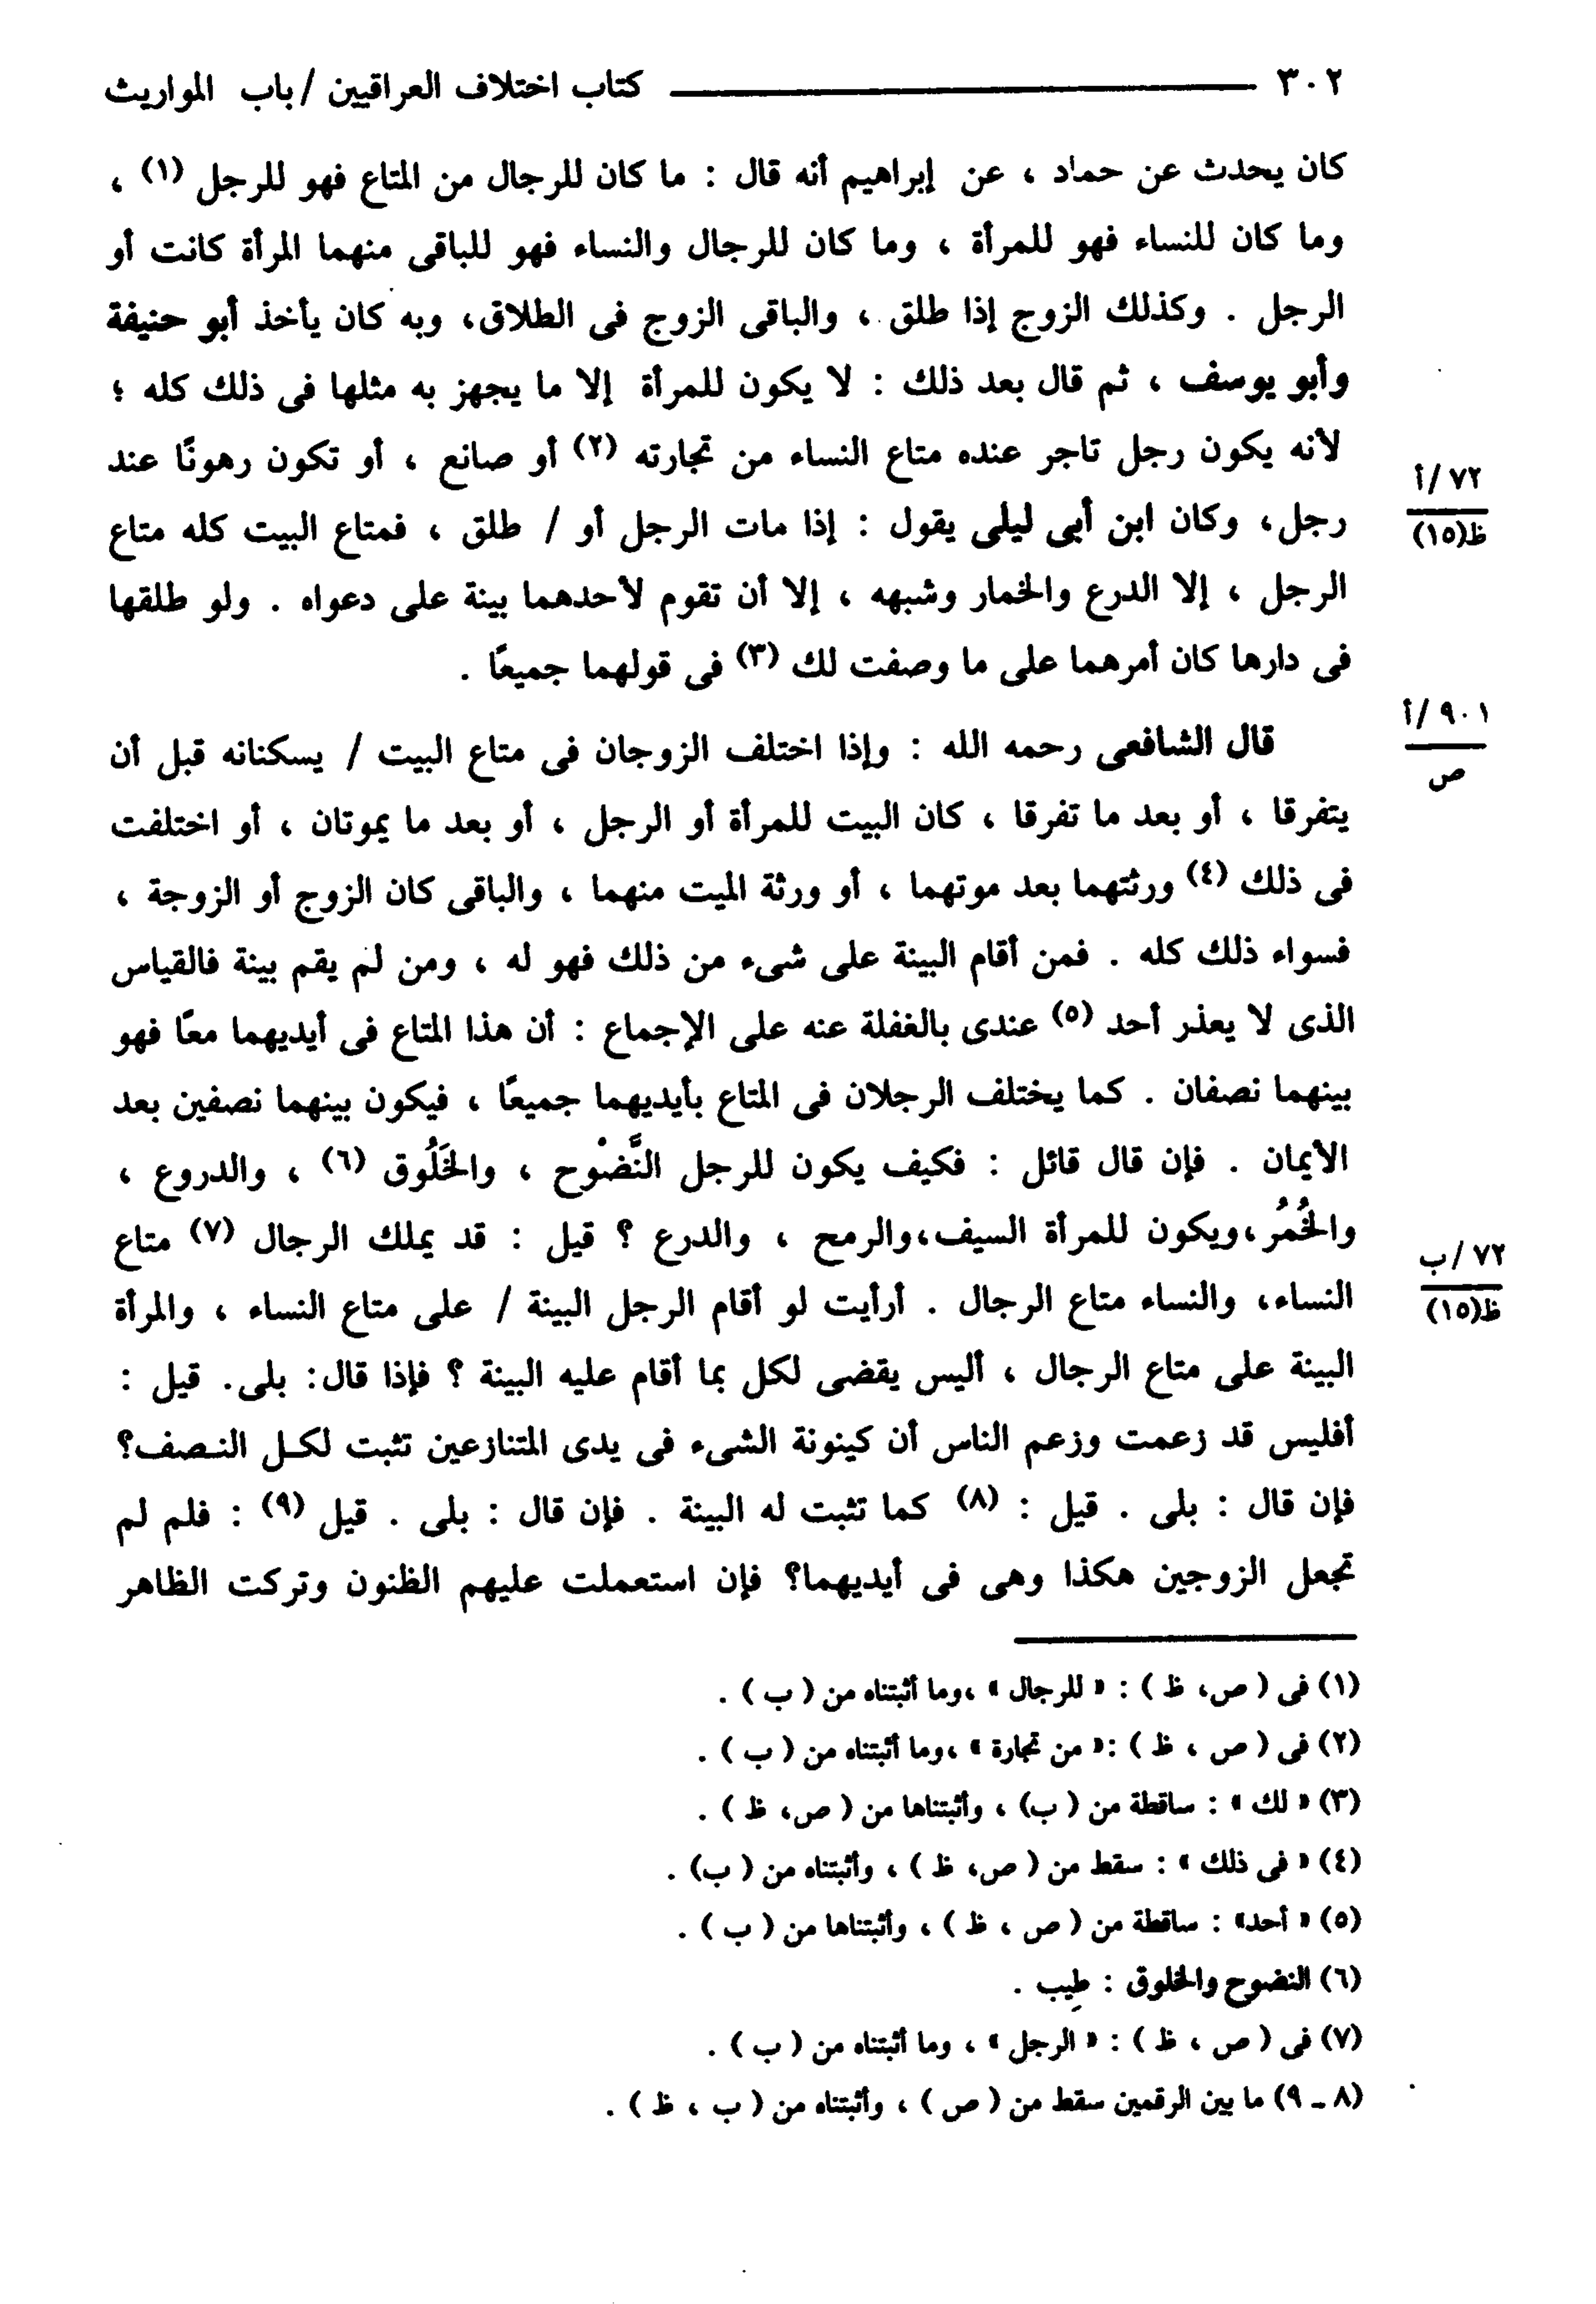 ٣٠٢ ــــــــــــــــــــ كتاب اختلاف العراقيين / باب المواريث
كان يحدث عن حماد ، عن إبراهيم أنه قال : ما كان للرجال من المتاع فهو للرجل (١) ،
وما كان للنساء فهو للمرأة ، وما كان للرجال والنساء فهو للباقى منهما المرأة كانت أو
الرجل . وكذلك الزوج إذا طلق ، والباقى الزوج فى الطلاق، وبه كان يأخذ أبو حنيفة
وأبو يوسف ، ثم قال بعد ذلك : لا يكون للمرأة إلا ما يجهز به مثلها فى ذلك كله ؛
لأنه يكون رجل تاجر عنده متاع النساء من تجارته (٢) أو صانع ، أو تكون رهونًا عند
٧٢ /أ
ظ(١٥)
رجل، وكان ابن أبى ليلى يقول : إذا مات الرجل أو / طلق ، فمتاع البيت كله متاع
الرجل ، إلا الدرع والخمار وشبهه ، إلا أن تقوم لأحدهما بينة على دعواه . ولو طلقها
فى دارها كان أمرهما على ما وصفت لك (٣) فى قولهما جميعًا .
٩٠١ /أ
ص
قال الشافعى رحمه الله : وإذا اختلف الزوجان فى متاع البيت / يسكنانه قبل أن
يتفرقا ، أو بعد ما تفرقا ، كان البيت للمرأة أو الرجل ، أو بعد ما يموتان ، أو اختلفت
فى ذلك (٤) ورثتهما بعد موتهما ، أو ورثة الميت منهما ، والباقى كان الزوج أو الزوجة ،
فسواء ذلك كله . فمن أقام البينة على شىء من ذلك فهو له ، ومن لم يقم بينة فالقياس
الذى لا يعذر أحد (٥) عندى بالغفلة عنه على الإجماع : أن هذا المتاع فى أيديهما معًا فهو
بينهما نصفان . كما يختلف الرجلان فى المتاع بأيديهما جميعًا ، فيكون بينهما نصفين بعد
الأيمان . فإن قال قائل : فكيف يكون للرجل النَّضْوح ، والخَلُوق (٦) ، والدروع ،
والخُمُر،ويكون للمرأة السيف،والرمح ، والدرع ؟ قيل : قد يملك الرجال (٧) متاع
٧٢ /ب
ظ(١٥)
النساء، والنساء متاع الرجال . أرأيت لو أقام الرجل البينة / على متاع النساء ، والمرأة
البينة على متاع الرجال ، أليس يقضى لكل بما أقام عليه البينة ؟ فإذا قال: بلى. قيل :
أفليس قد زعمت وزعم الناس أن كينونة الشىء فى يدى المتنازعين تثبت لكـل النـصف؟
فإن قال : بلى . قيل : (٨) كما تثبت له البينة . فإن قال : بلى . قيل (٩) : فلم لم
تجعل الزوجين هكذا وهى فى أيديهما؟ فإن استعملت عليهم الظنون وتركت الظاهر
(١) فى ( ص، ظ ) : « للرجال » ،وما أثبتناه من ( ب ) .
(٢) فى ( ص ، ظ ) :« من تجارة » ،وما أثبتناه من ( ب ) .
(٣) « لك » : ساقطة من ( ب) ، وأثبتناها من ( ص، ظ ) .
(٤) « فى ذلك » : سقط من ( ص، ظ ) ، وأثبتناه من ( ب) .
(٥) « أحد» : ساقطة من ( ص ، ظ ) ، وأثبتناها من ( ب ) .
(٦) النضوح والخلوق : طِيب .
(٧) فى ( ص ، ظ ) : « الرجل » ، وما أثبتناه من ( ب ) .
(٨ - ٩) ما بين الرقمين سقط من ( ص ) ، وأثبتناه من ( ب ، ظ ) .